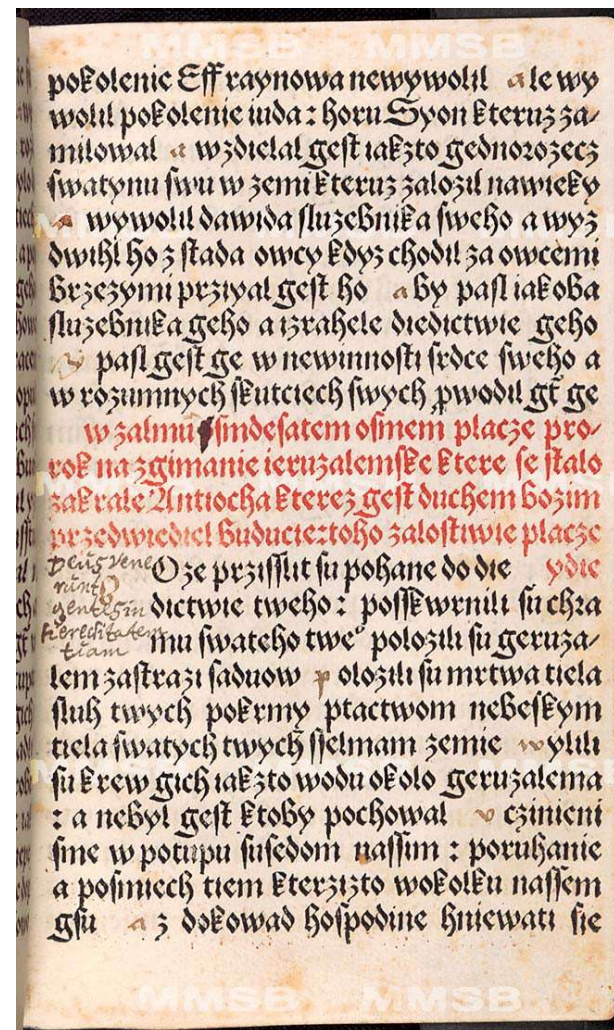 pokolenie Effraynowa newywolil a le wy
wolil pokolenie iuda : horu Syon kteruz za/
milowal a wzdielal gest iakzto gednorozecz
swatynu swu w zemi kteruz zalozil nawieky
a wywolil dawida sluzebnika sweho a wyz
dwihl ho z stada owcy kdyz chodil za owcemi
brzezymi prziyal gest ho a by pasl iakoba
sluzebnika geho a izrahele diedictwie geho
y pasl gest ge w newinnosti srdce sweho a
w rozumnych skutciech swych pwodil gt ge
w zalmu smdesatem osmem placze pro-
rok na zgimanie ieruzalemske ktere se stalo
zakrale Antiocha kterez gest duchem bozim
przedwiediel buducie: ztoho zalostiwie placze
ydie
Deus vene
runt
gentes in
hereditatem
tuam
Oze przissli su pohane do die
dictwie tweho : posskwrnili su chra
mu swateho twe polozili su geruza/
lem zastrazi saduow p olozili su mrtwa tiela
sluh twych pokrmy ptactwom nebeskym
tiela swatych twych sselmam zemie w ylili
su krew gich iakzto wodu okolo geruzalema
: a nebyl gest ktoby pochowal v czinieni
sme w potupu susedom nassim : poruhanie
a posmiech tiem kterzizto wokolku nassem
gsu a z dokowad hospodine hniewati sie